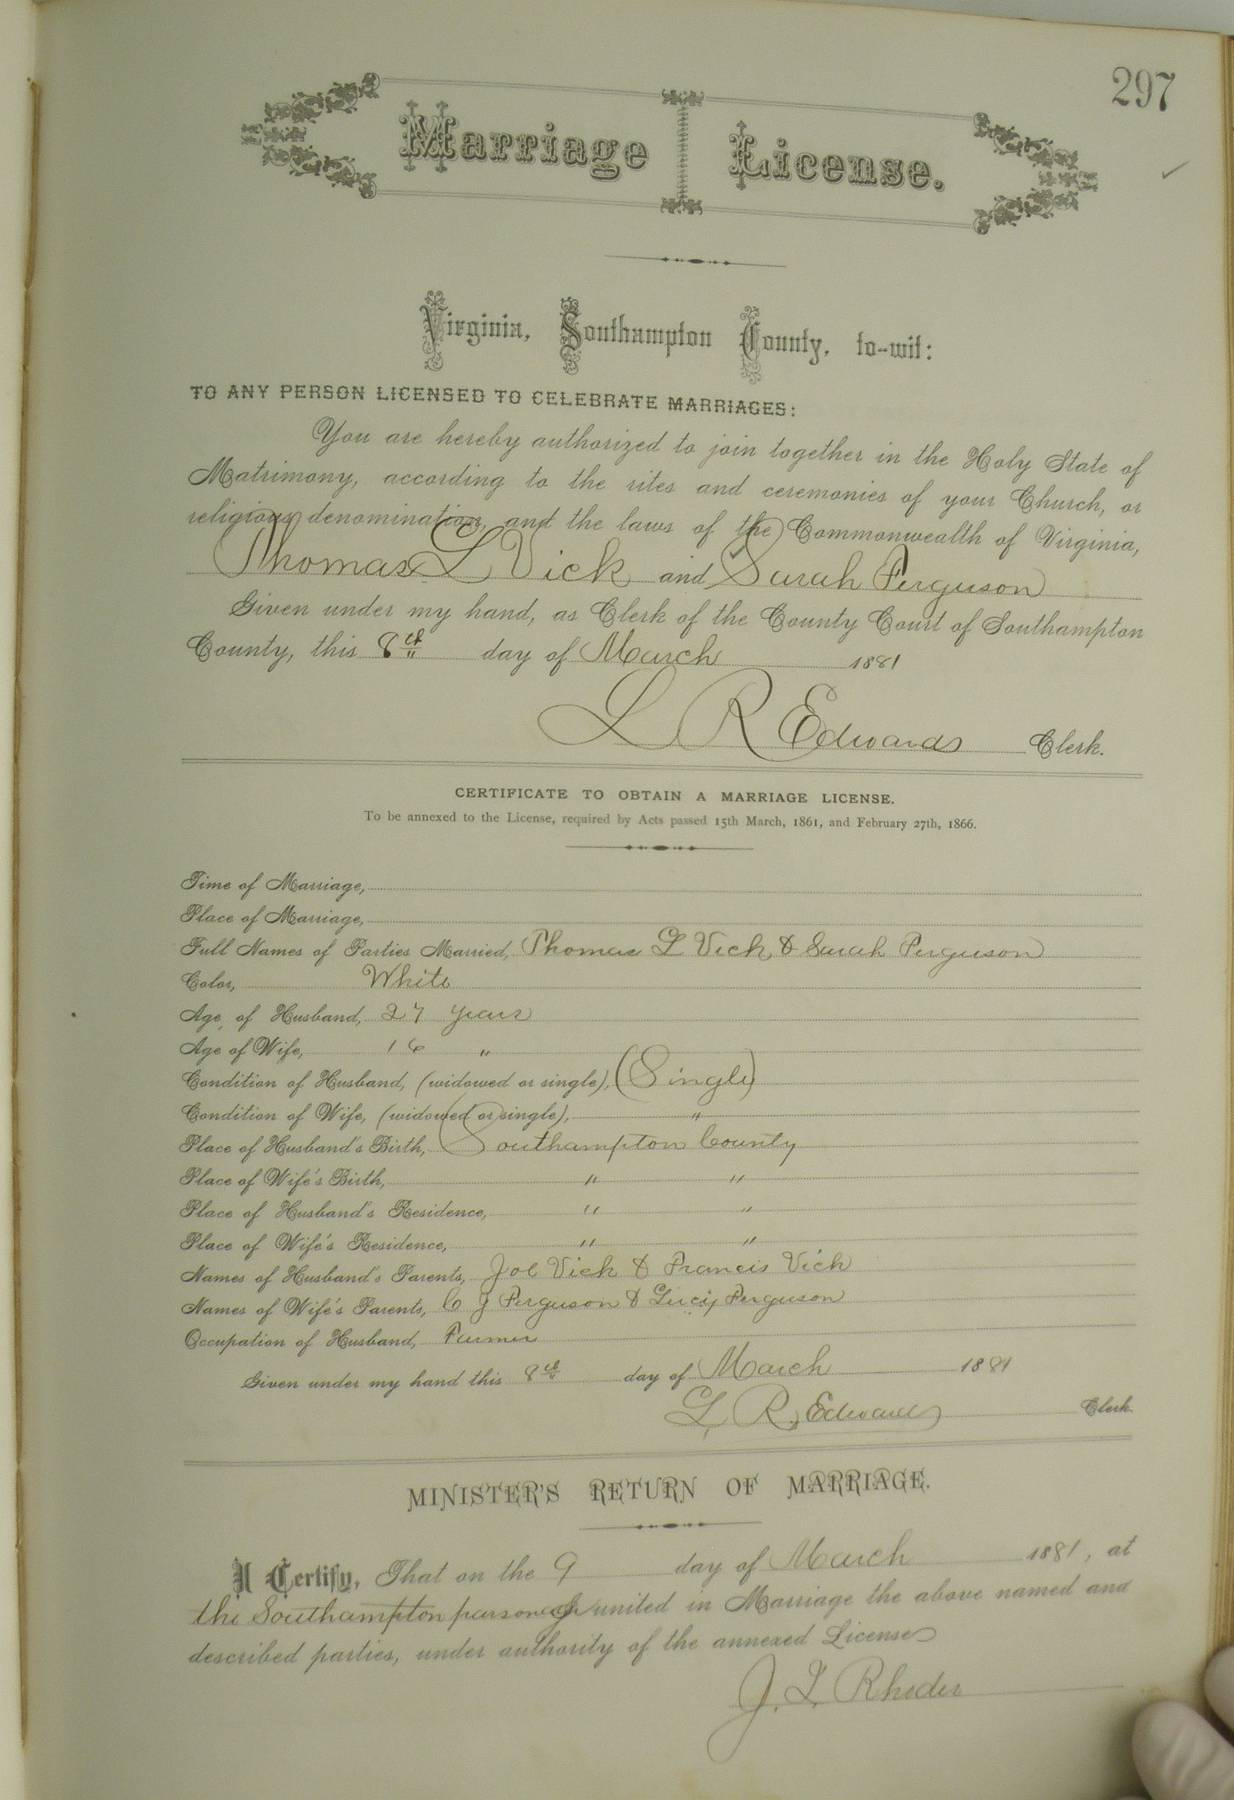 297
Marriage License.
Virginia, Southampton County, to-wit:
TO ANY PERSON LICENSED TO CELEBRATE MARRIAGES:
You are hereby authorized to join together in the Holy State of
Matrimony, according to the rites and ceremonies of your Church, or
religious denomination, and the laws of the Commonwealth of Virginia,
Thomas L Vick and Sarah Ferguson
Given under my hand, as Clerk of the County Court of Southampton
County, this 8th day of March 1881
L R Edwards Clerk.
CERTIFICATE TO OBTAIN A MARRIAGE LICENSE.
To be annexed to the License, required by Acts passed 15th March, 1861, and February 27th, 1866.
Time of Marriage,
Place of Marriage,
Full Names of Parties Married, Thomas L Vick, & Sarah Ferguson
Color, White
Age of Husband, 27 years
Age of Wife, 16 "
Condition of Husband, (widowed or single), (Single)
Condition of Wife, (widowed or single), "
Place of Husband's Birth, Southampton County
Place of Wife's Birth, " "
Place of Husband's Residence, " "
Place of Wife's Residence, " "
Names of Husband's Parents, Joe Vick & Francis Vick
Names of Wife's Parents, C J Ferguson & Lucy Ferguson
Occupation of Husband, Farmer
Given under my hand this 8th day of March 1881
L. R. Edwards Clerk.
MINISTER'S RETURN OF MARRIAGE.
I Certify, That on the 9 day of March 1881, at
the Southampton parsonage united in Marriage the above named and
described parties, under authority of the annexed License
J. L.